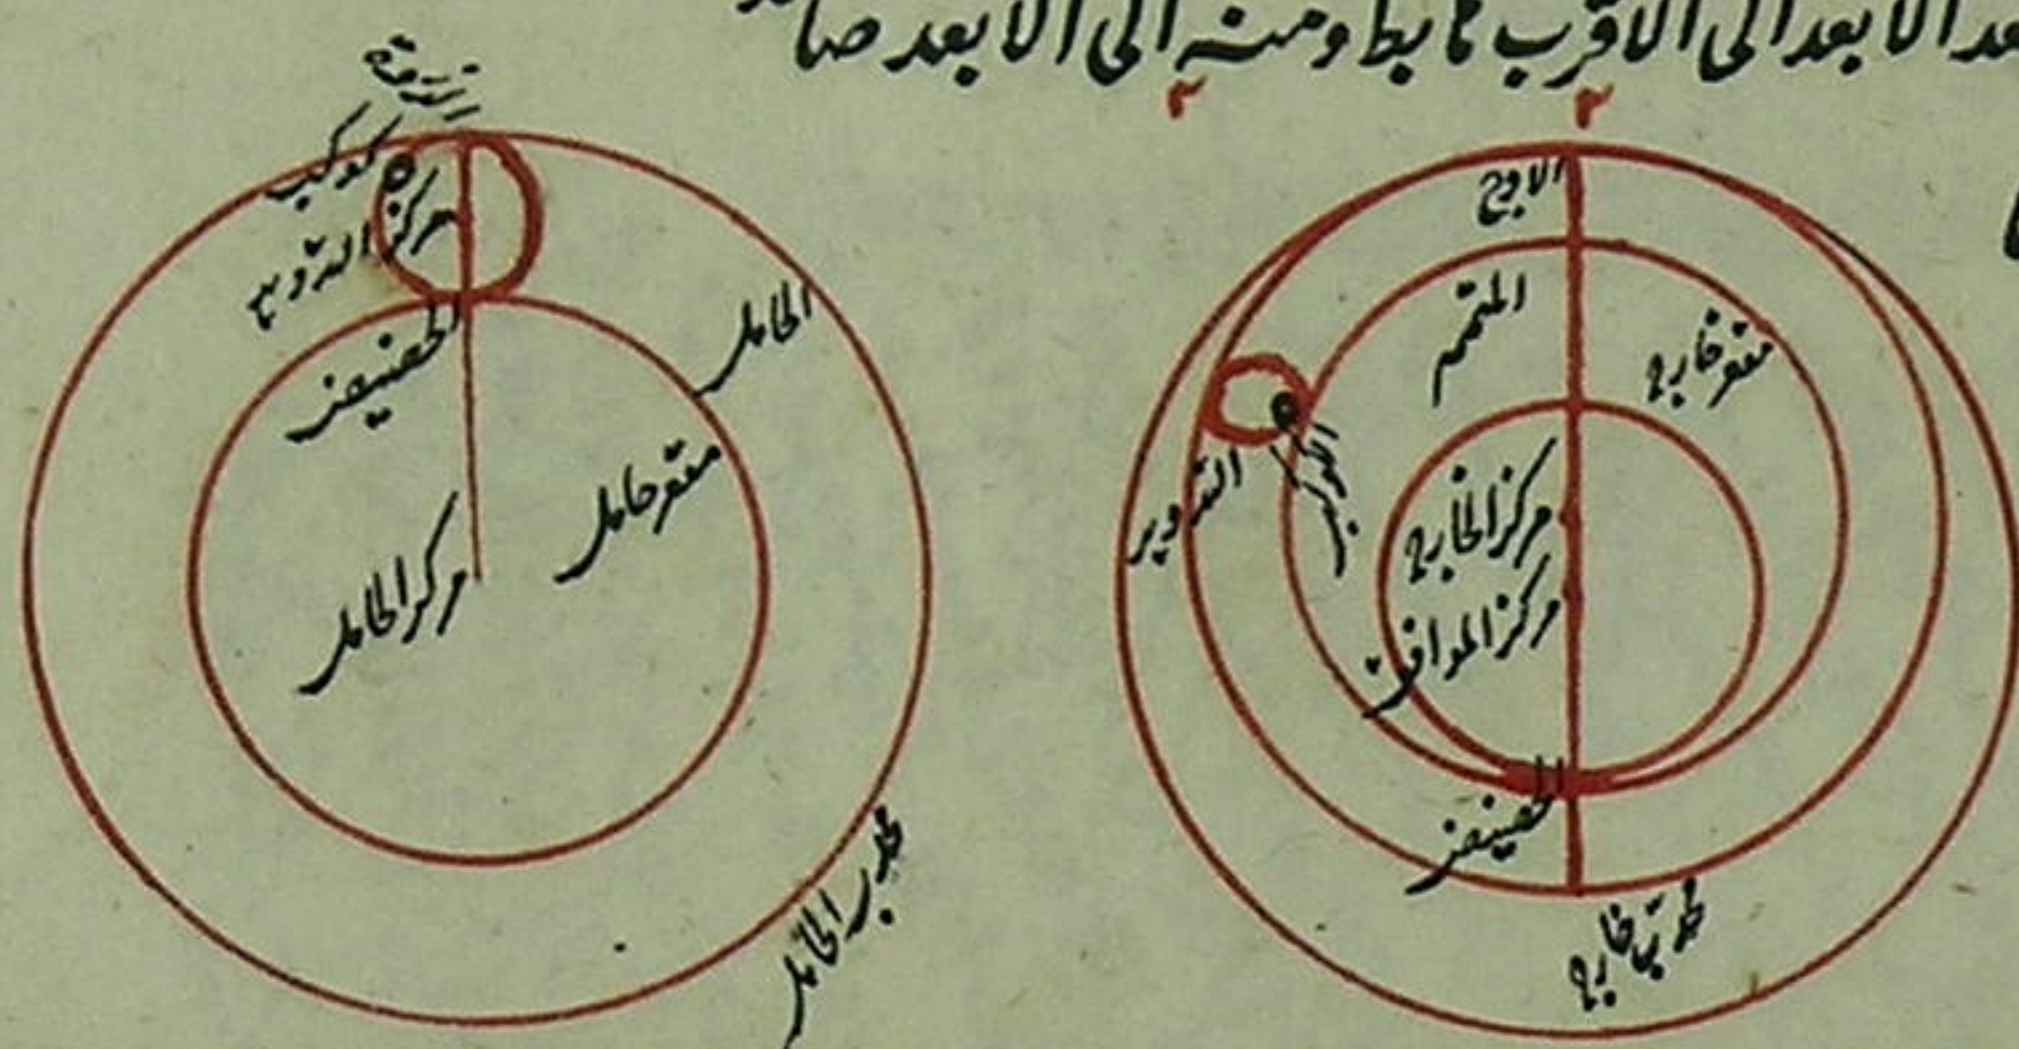 الابعد الى الاقرب هابطا ومنه الى الابعد صا
الاوج
المتمم
مقعر خارج
مركز الخارج
مركز الموافق
التدوير
الحضيض
محدب خارج
ذروة
كوكب
مركز التدوير
الحضيض
الحامل
مقعر حامل
مركز الحامل
محدب الحامل